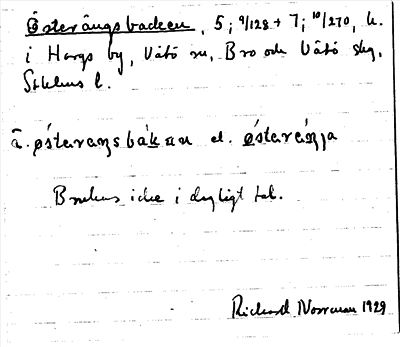 Österängsbacken, 5; 9/128 + 7; 10/270, h.
i Hargs by, Vätö sn, Bro och Vätö skg,
Sthlms l.
ā. østeraŋsbákan el. østeráŋja
Brukas icke i dagligt tal.
Richard Norrman 1929